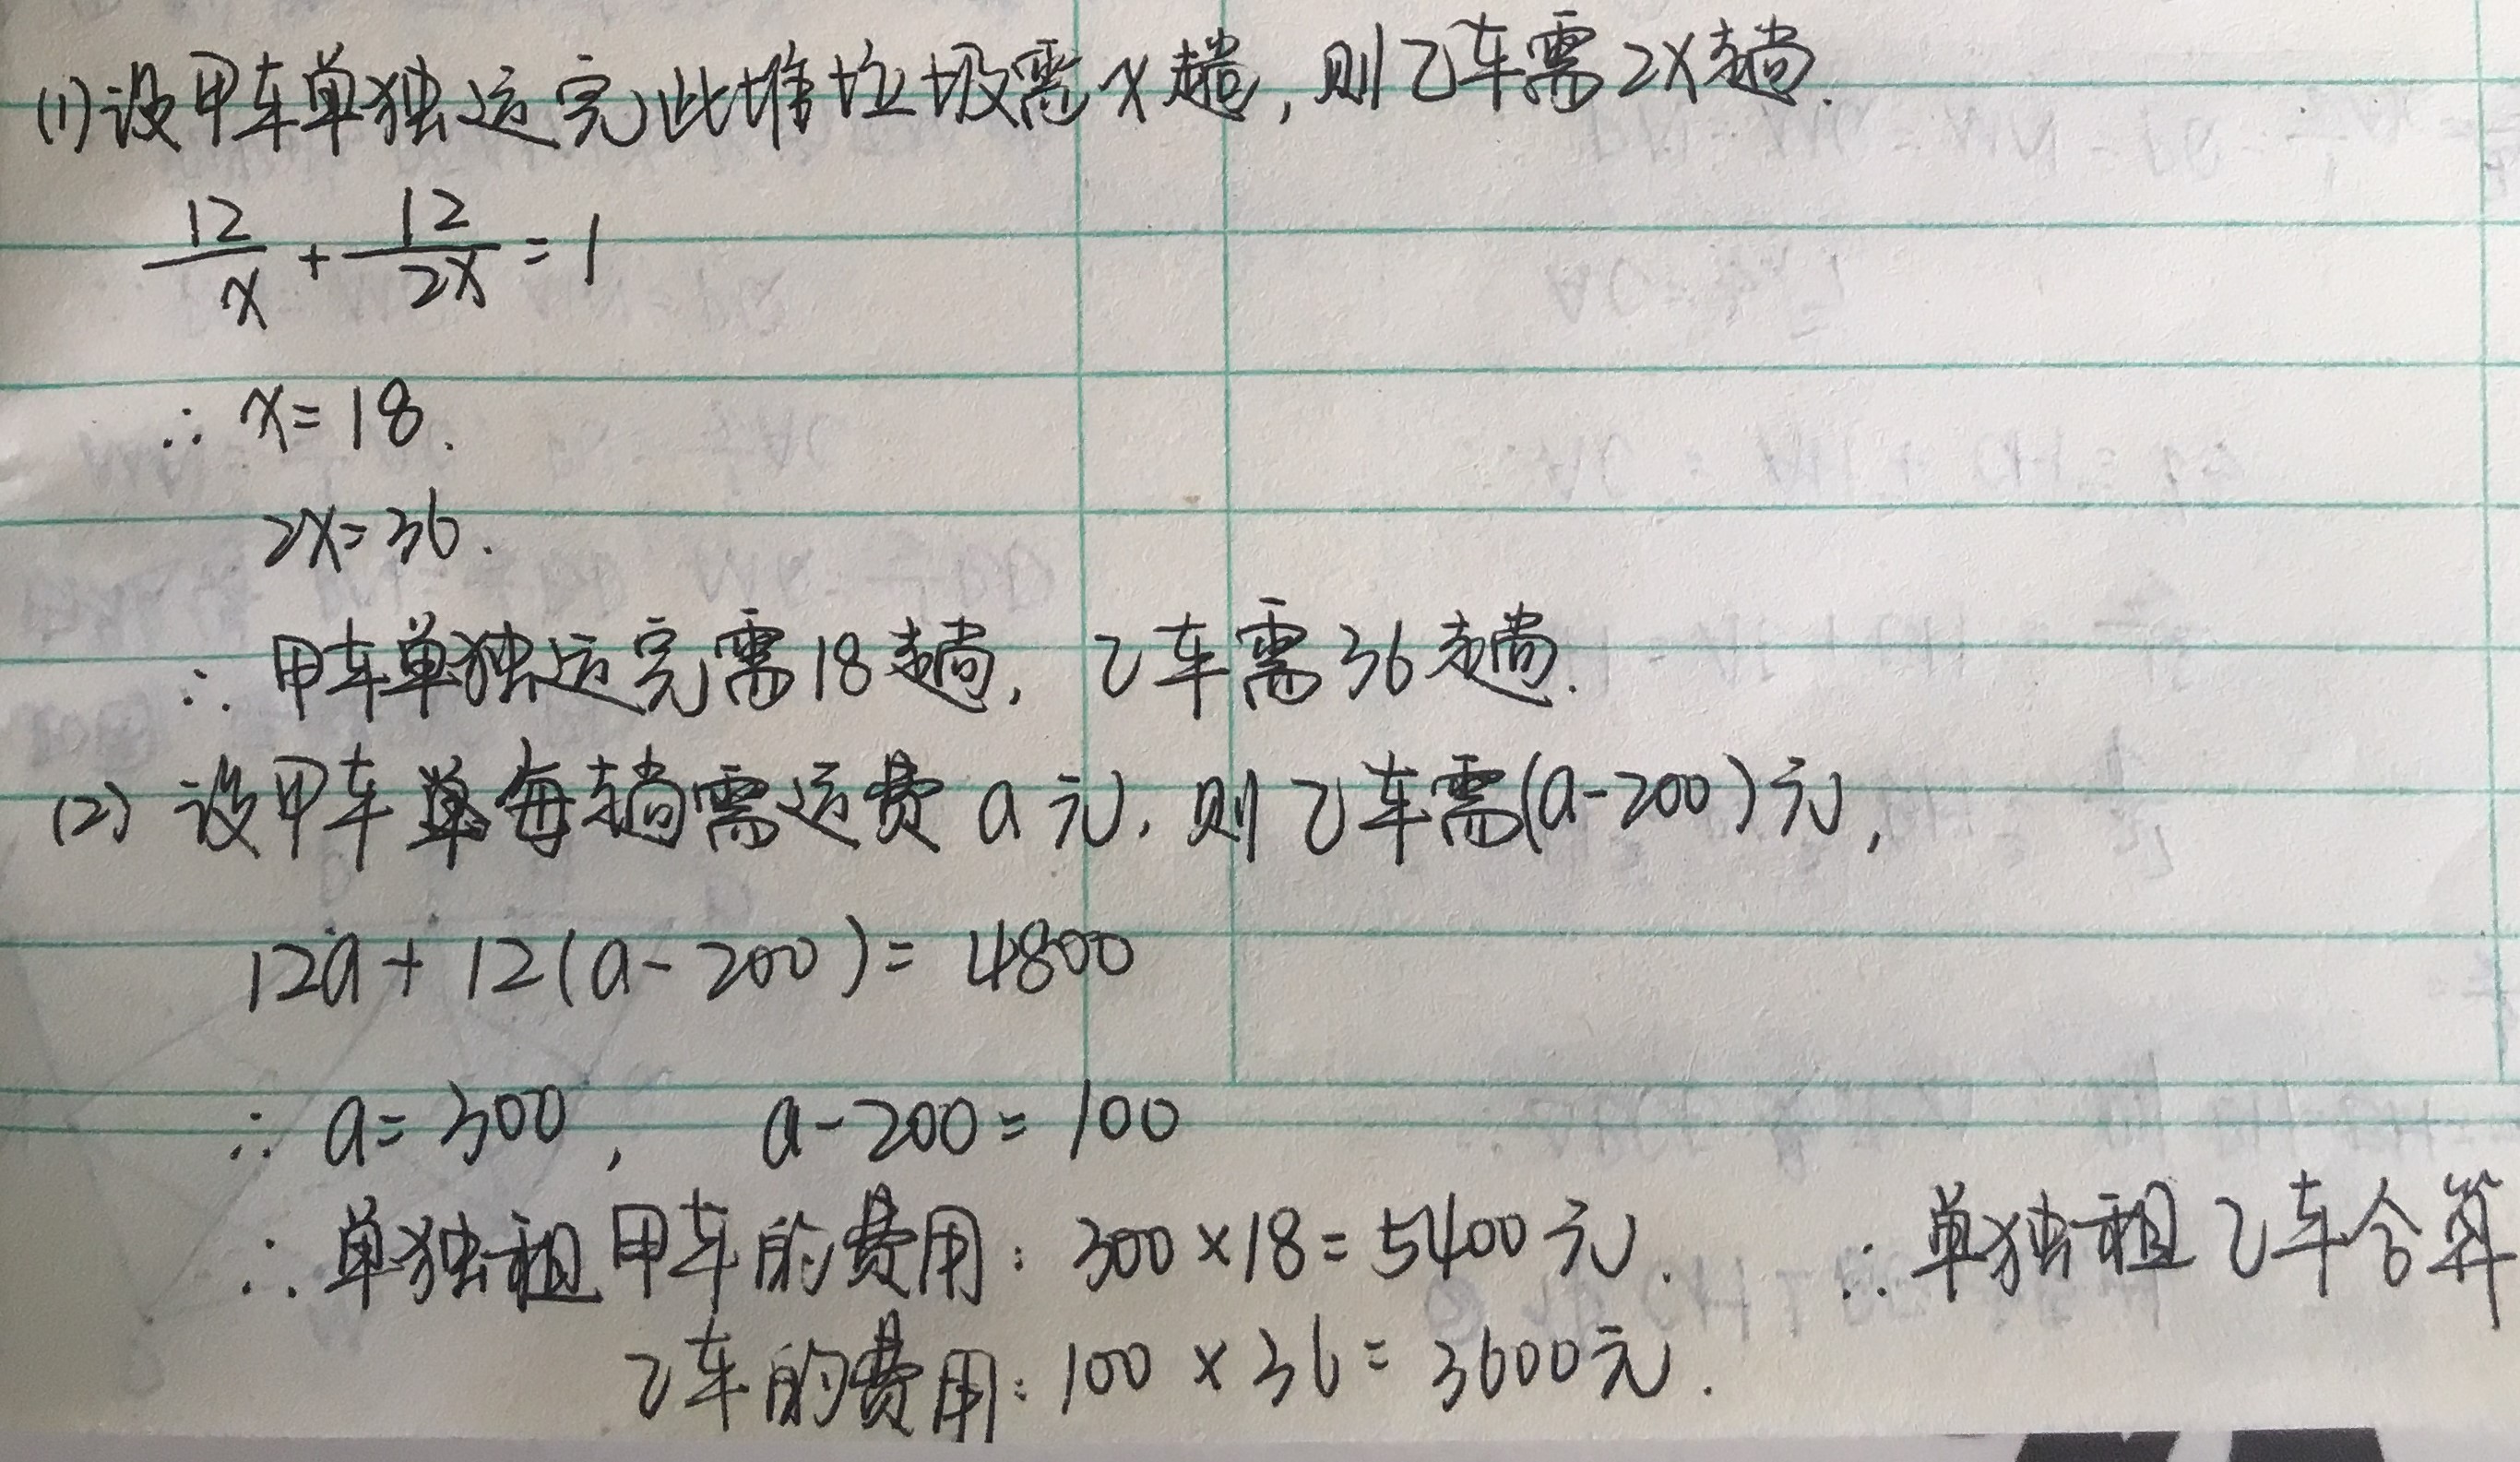 (1)设甲车单独运完此堆垃圾需x趟,则乙车需2x趟.
12/x + 12/2x = 1
∴ x=18.
2x=36.
∴ 甲车单独运完需18趟, 乙车需36趟.
(2) 设甲车每趟需运费a元,则乙车需(a-200)元,
12a+12(a-200)=4800
∴ a=300, a-200=100
∴单独租甲车的费用: 300×18=5400元. ∴单独租乙车合算
乙车的费用: 100×36=3600元.